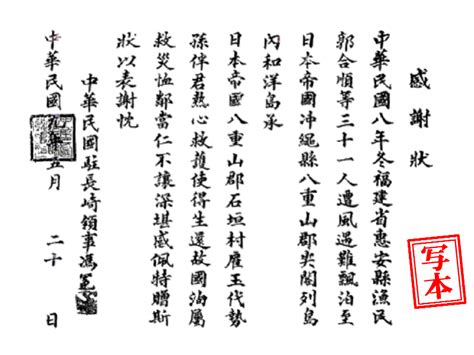 感謝狀
中華民國八年冬福建省惠安縣漁民
郭合順等三十一人遭風遇難飄泊至
日本帝國冲繩縣八重山郡尖閣列島
內和洋島承
日本帝國八重山郡石垣村雇玉代勢
孫伴君熱心救護使得生還故國洵屬
救災恤鄰當仁不讓深堪感佩特贈斯
狀以表謝忱
中華民國駐長崎領事馮冕
中華民國九年五月二十日
写本